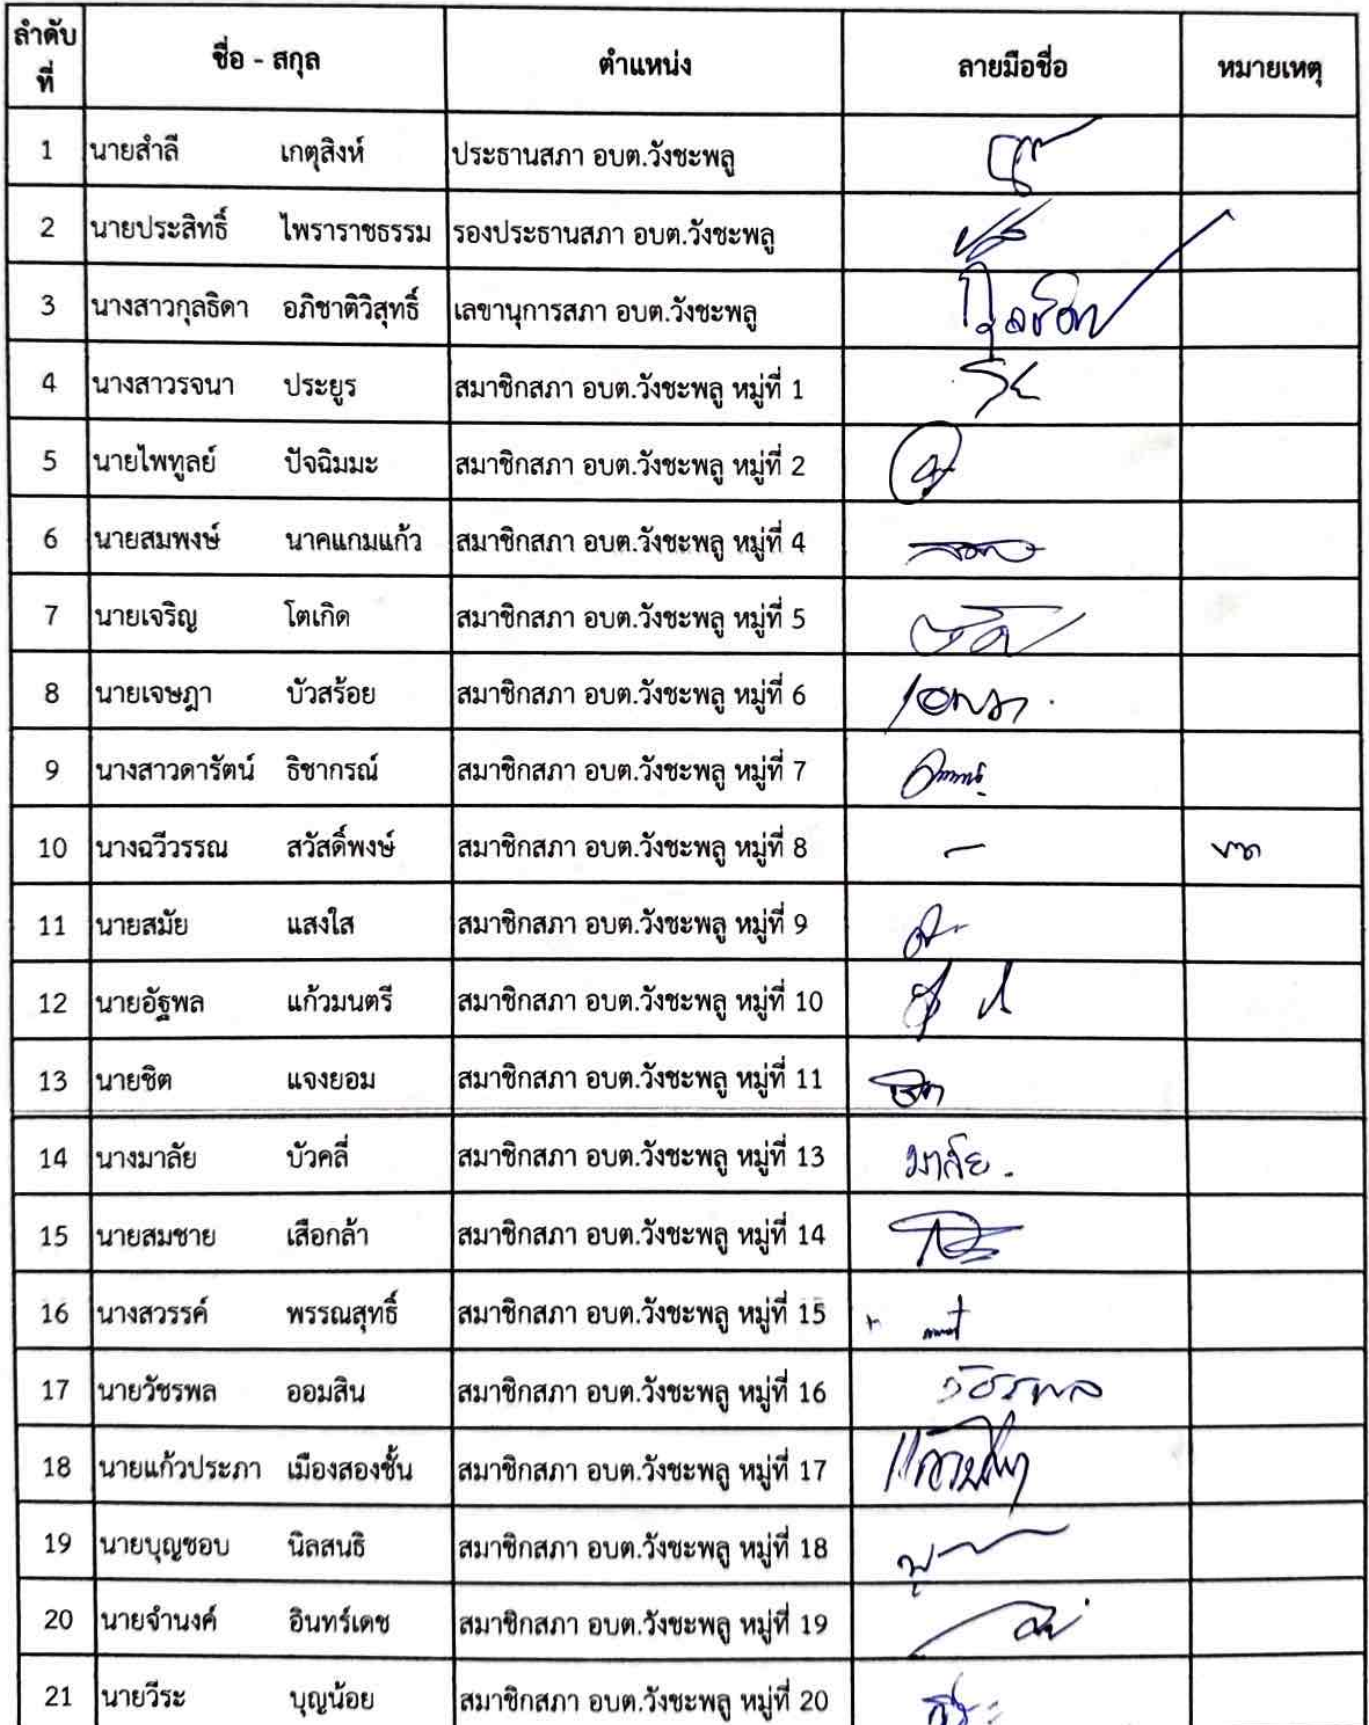 ลำดับที่ ชื่อ - สกุล ตำแหน่ง ลายมือชื่อ หมายเหตุ
1 นายสำลี เกตุสิงห์ ประธานสภา อบต.วังชะพลู
2 นายประสิทธิ์ ไพราราชธรรม รองประธานสภา อบต.วังชะพลู
3 นางสาวกุลธิดา อภิชาติวิสุทธิ์ เลขานุการสภา อบต.วังชะพลู
4 นางสาวรจนา ประยูร สมาชิกสภา อบต.วังชะพลู หมู่ที่ 1
5 นายไพฑูลย์ ปัจฉิมมะ สมาชิกสภา อบต.วังชะพลู หมู่ที่ 2
6 นายสมพงษ์ นาคแกมแก้ว สมาชิกสภา อบต.วังชะพลู หมู่ที่ 4
7 นายเจริญ โตเกิด สมาชิกสภา อบต.วังชะพลู หมู่ที่ 5
8 นายเจษฎา บัวสร้อย สมาชิกสภา อบต.วังชะพลู หมู่ที่ 6
9 นางสาวดารัตน์ ธิชากรณ์ สมาชิกสภา อบต.วังชะพลู หมู่ที่ 7
10 นางฉวีวรรณ สวัสดิ์พงษ์ สมาชิกสภา อบต.วังชะพลู หมู่ที่ 8 -
11 นายสมัย แสงใส สมาชิกสภา อบต.วังชะพลู หมู่ที่ 9
12 นายอัฐพล แก้วมนตรี สมาชิกสภา อบต.วังชะพลู หมู่ที่ 10
13 นายชิต แจงยอม สมาชิกสภา อบต.วังชะพลู หมู่ที่ 11
14 นางมาลัย บัวคลี่ สมาชิกสภา อบต.วังชะพลู หมู่ที่ 13 มาลัย
15 นายสมชาย เสือกล้า สมาชิกสภา อบต.วังชะพลู หมู่ที่ 14
16 นางสวรรค์ พรรณสุทธิ์ สมาชิกสภา อบต.วังชะพลู หมู่ที่ 15
17 นายวัชรพล ออมสิน สมาชิกสภา อบต.วังชะพลู หมู่ที่ 16 วัชรพล
18 นายแก้วประภา เมืองสองชั้น สมาชิกสภา อบต.วังชะพลู หมู่ที่ 17
19 นายบุญชอบ นิลสนธิ สมาชิกสภา อบต.วังชะพลู หมู่ที่ 18
20 นายจำนงค์ อินทร์เดช สมาชิกสภา อบต.วังชะพลู หมู่ที่ 19
21 นายวีระ บุญน้อย สมาชิกสภา อบต.วังชะพลู หมู่ที่ 20